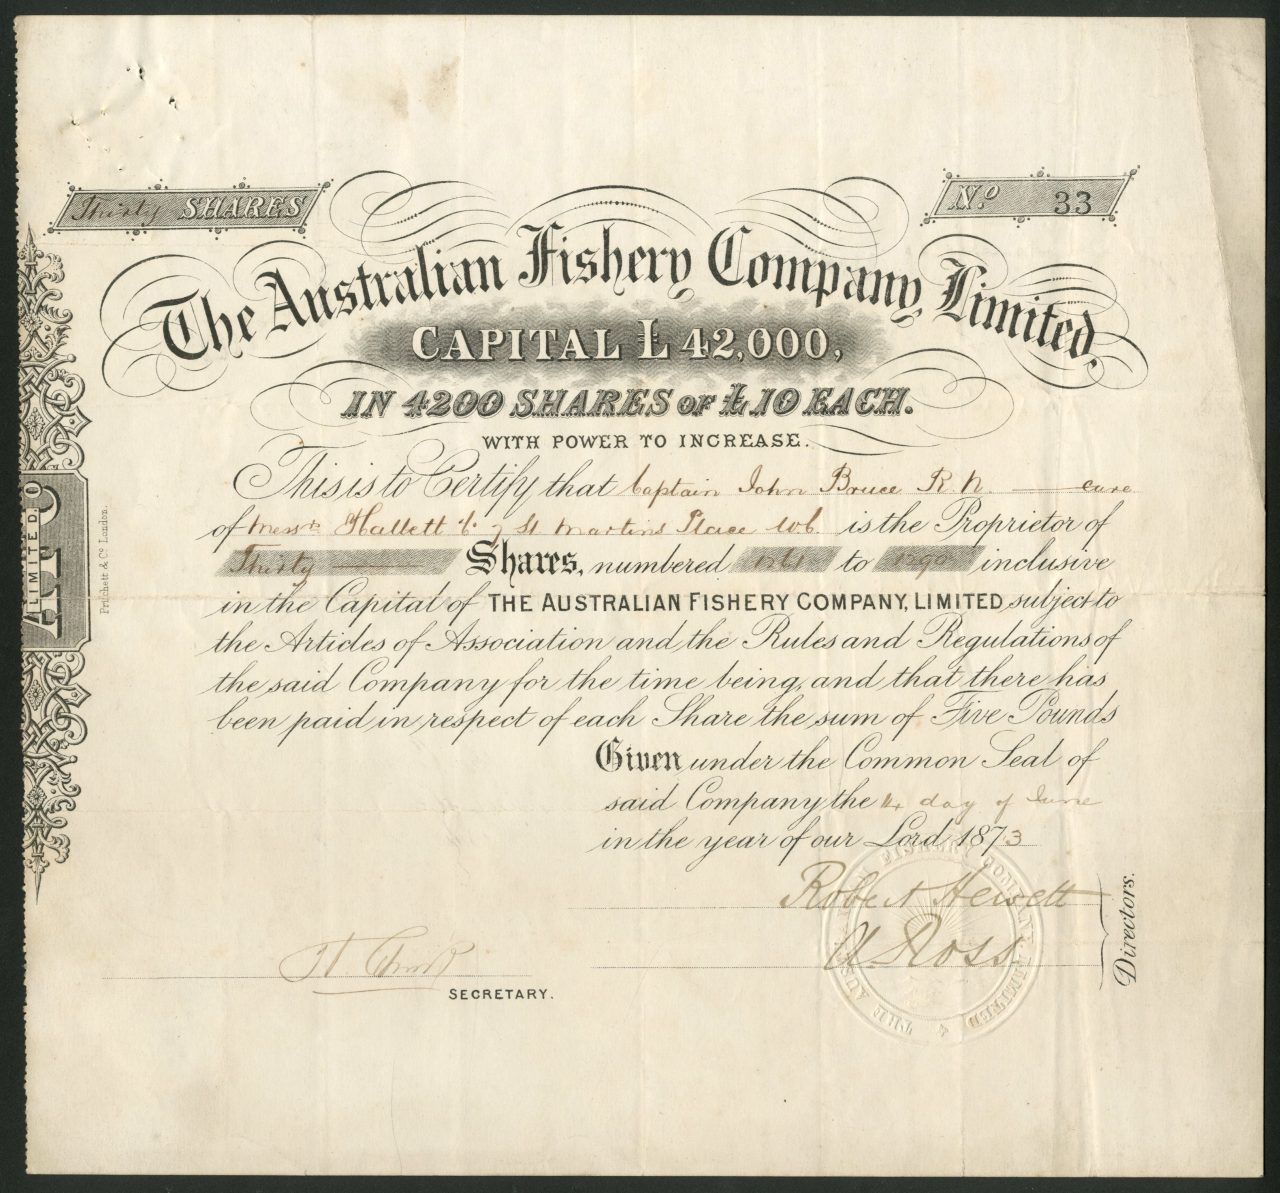 Thirty SHARES
No 33
The Australian Fishery Company, Limited,
CAPITAL £ 42,000,
IN 4200 SHARES OF £10 EACH.
WITH POWER TO INCREASE.
This is to Certify that Captain John Bruce R.N. care
of Messrs Hallett & Co St Martins Place W.C. is the Proprietor of
Thirty Shares, numbered 1261 to 1290 inclusive
in the Capital of THE AUSTRALIAN FISHERY COMPANY, LIMITED subject to
the Articles of Association and the Rules and Regulations of
the said Company for the time being, and that there has
been paid in respect of each Share the sum of Five Pounds
Given under the Common Seal of
said Company the 14 day of June
in the year of our Lord 1873
Robert Hewett
A. Ross
Directors.
SECRETARY.
THE AUSTRALIAN FISHERY COMPANY LIMITED
LIMITED.
Pritchett & Co London.